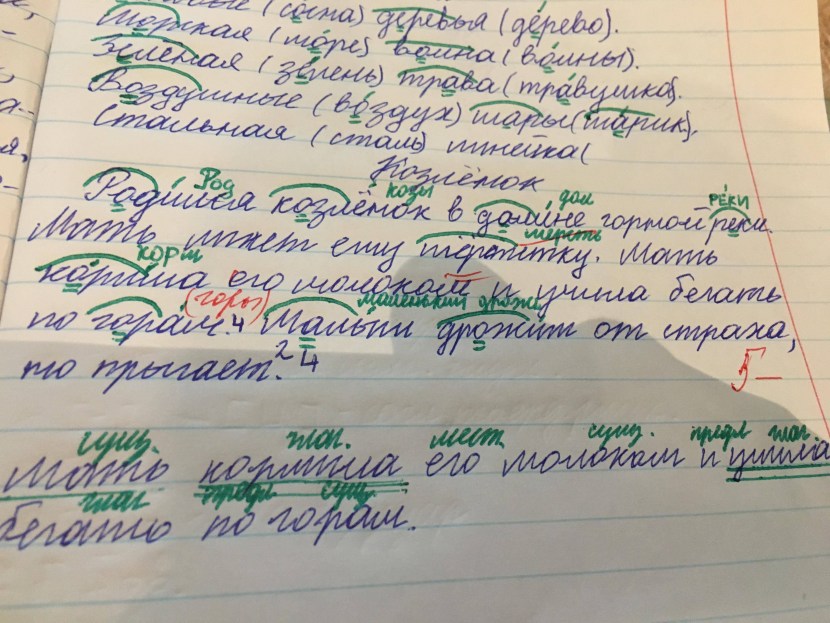 (сосна) деревья (дерево).
Морская (море) волна (волны).
Зелёная (зелень) трава (травушка).
Воздушные (воздух) шары (шарик).
Стальная (сталь) линейка (
Козлёнок
Род козы дол РЕКИ
Родился козлёнок в долине горной реки.
шерсть
Мать лижет ему шёрстку. Мать
корм
кормила его молоком и учила бегать
(горы) маленький дрожь
по горам.4 Малыш дрожит от страха,
но прыгает.2 4
5-
сущ. глаг. мест сущ. предл глаг.
Мать кормила его молоком и учила
глаг. предл сущ.
бегать по горам.